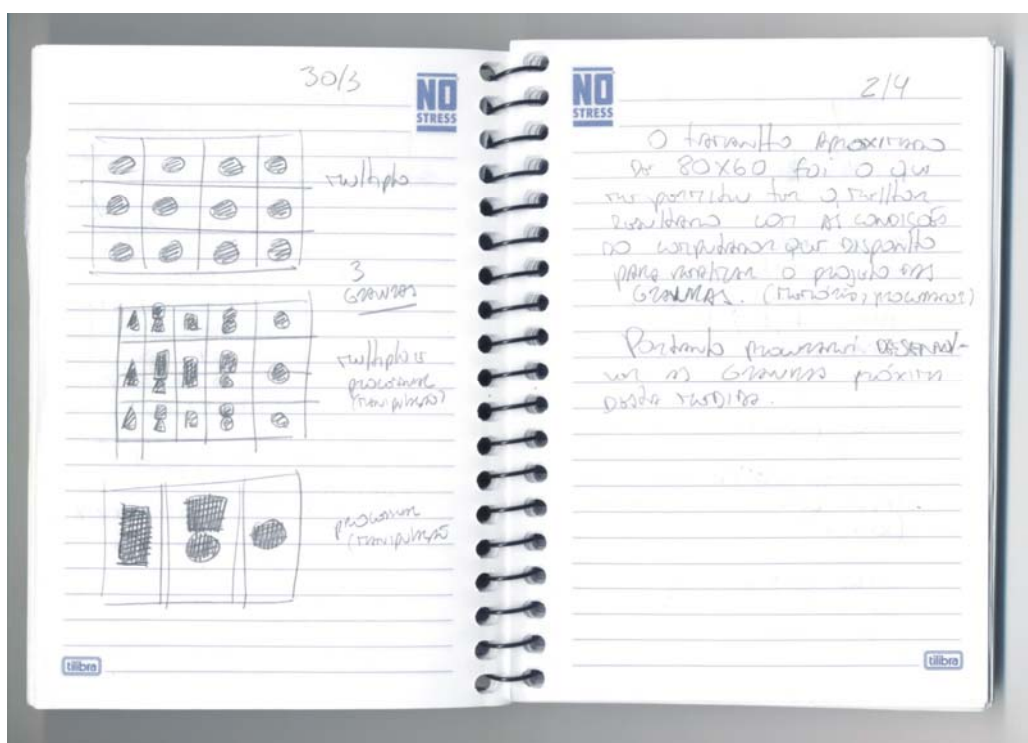 30/3
NO
STRESS
multiplo
3
GRAVURAS
multiplo e
processual
(manipulação)
processual
(manipulação
tilibra
NO
STRESS
2/4
O tamanho APROXIMADO
de 80X60 foi o que
me permitiu ter o melhor
resultado com AS CONDIÇÕES
DO computador que disponho
PARA realizar o projeto das
GRAVURAS. (memória, processador)
Portanto procurarei DESENVOL-
ver AS GRAVURAS próximo
desta medida.
tilibra